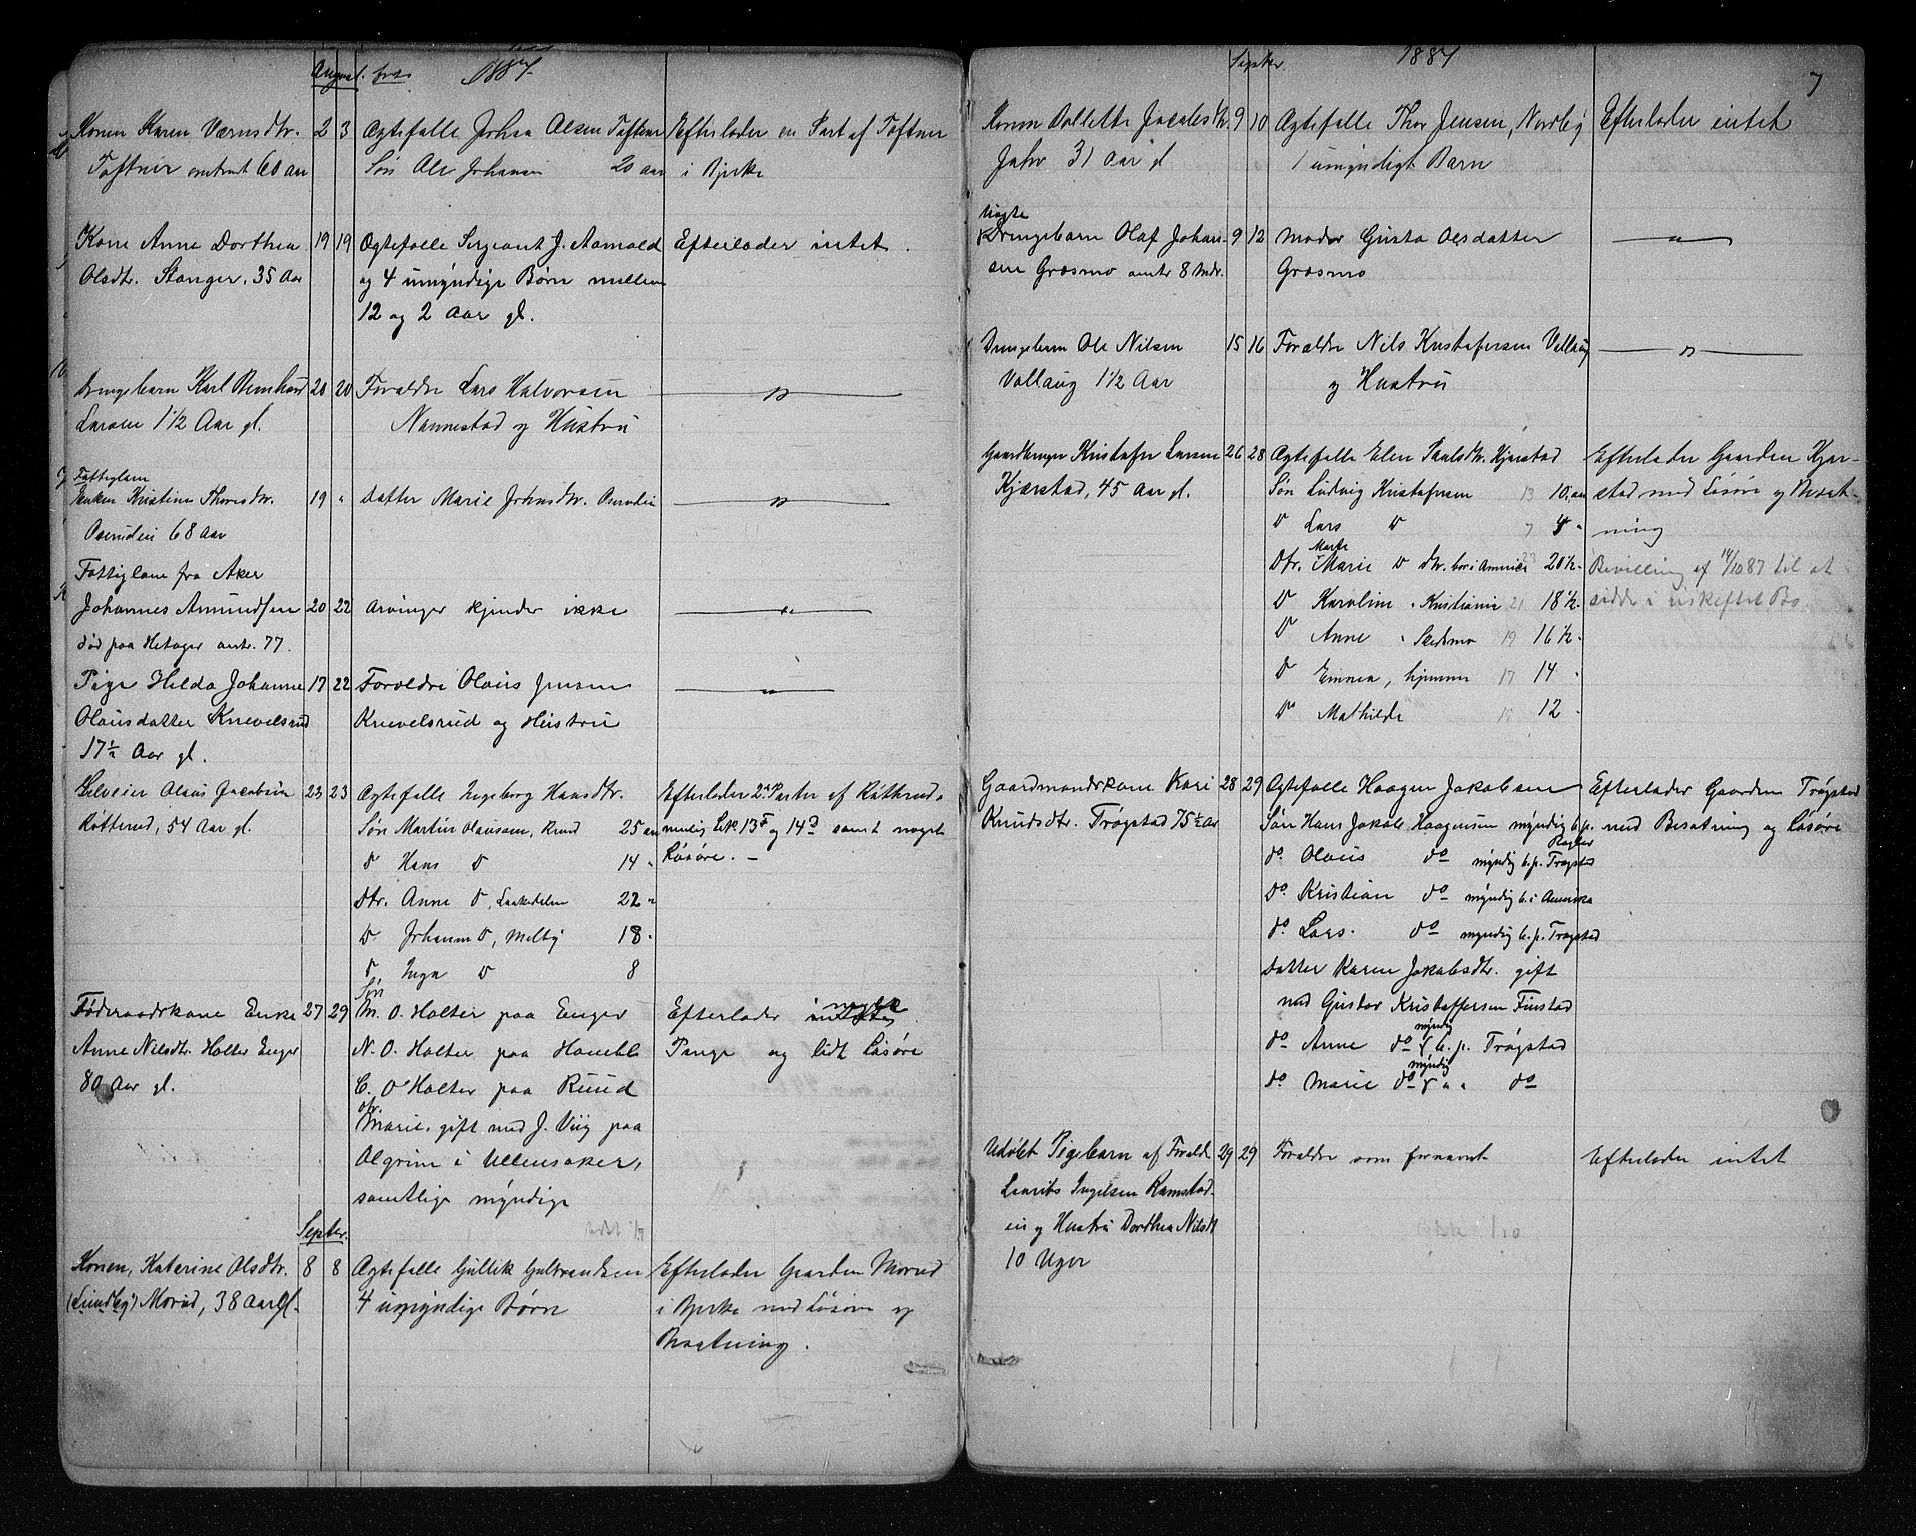 August. 1887.
Konen Karen Værnsdtr. 2 3 Ægtefælle Johan Olsen Toftner Efterlader en Part af Toftner
Toftner omtrent 60 aar Søn Ole Johansen 20 aar i Bjerke
Kone Anne Dorthea 19 19 Ægtefælle Sergeant J. Aamold Efterlader intet.
Olsdtr. Stanger, 35 Aar og 4 umyndige Børn mellem
12 og 2 Aar gl.
Drengebarn Karl Bernhard 20 20 Forældre Lars Halvorsen — " —
Larsen 1 1/2 Aar gl. Nannestad og Hustru
Fattiglem
Enken Kristine Thoresdtr. 19 " datter Marie Johnsdtr. — " —
68 Aar
Fattiglem fra Aker
Johannes Amundsen 20 22 arvinger kjender ikke — " —
død paa Hetager omtr. 77.
Pige Hilda Johanne 17 22 Forældre Olaus Jensen — " —
Olausdatter Knevelsrud Knevelsrud og Hustru
17 1/2 Aar gl.
Selveier Olaus Jacobsen 23 23 Ægtefælle Ingeborg Hansdtr. Efterlader 2de Parter af Røtterud,
Røtterud, 54 Aar gl. Søn Martin Olausen, Rund 25 aar nemlig Lnr. 13 og 14 samt noget
do Hans do 14 " Løsøre. —
Dtr. Anne do, 22 "
do Johanne do, Melby 18 "
do, Inga do 8
Søn
Føderaadskone Enke 27 29 M. O. Holter paa Enger Efterlader intet noget
Anne Nilsdtr. Holter Enger N. O. Holter paa Penge og lidt Løsøre
80 Aar gl. C. O. Holter paa Ruud
dtr.
Marie, gift med J. Viig paa
Algrim i Ullensaker,
samtlige myndige
Septbr.
Konen, Katerine Olsdtr. 8 8 Ægtefælle Gullik Gulbrandsen Efterlader Gaarden Morud
(Lundby) Morud, 38 Aar gl. 4 umyndige Børn i Bjerke med Løsøre og
Besætning.
Septbr. 1887 7
Konen Collette Jacobsdtr. 9 10 Ægtefælle Thor Jensen, Nordby Efterlader intet
Jahr 31 Aar gl 1 umyndigt Barn
Uægte
Drengebarn Olaf Johan- 9 12 Moder Gusta Olsdatter — " —
sen Græsmo omtr 8 Mdr. Græsmo
Drengebarn Ole Nilsen 15 16 Forældre Nils Kristofersen Vollaug — " —
Vollaug 1 1/2 Aar og Hustru
Gaardbruger Kristofer Larsen 26 28 Ægtefælle Elen Paulsdtr. Kjærstad Efterlader Gaarden Kjær-
Kjærstad, 45 Aar gl. Søn Ludvig Kristofersen 13 10 aar stad med Løsøre og Besæt-
do Lars do 7 4 " ning
Marte
Dtr. Marie do bor i Amerika 23 20 1/2 - Bevilling af 14/10 87 til at
do Karoline " Kristiania 21 18 1/2 - sidde i uskiftet Bo.
do Anne " Skedsmo 19 16 1/2 -
do Emma, hjemme 17 14 -
do Mathilde 12 -
Gaardmandskone Kari 28 29 Ægtefælle Haagen Jakobsen Efterlader Gaarden Trøgstad
Knudsdtr. Trøgstad 75 1/2 Ar Søn Hans Jakob Haagensen myndig b. p. med Besætning og Løsøre
do. Olaus do myndig b. p. Trøgstad
Do. Kristian do myndig b. i Amerika
do. Lars. do myndig b. p. Trøgstad
Datter Karen Jakobsdtr. gift
med Gustav Kristoffersen Finstad
myndig
do Anne do b. p. Trøgstad
myndig
do Marie do " " do
Udøbt Pigebarn af Foræld 29 29 Forældre som fornævnt Efterlader intet
Laurits Ingelsen Ramstad-
en og Hustru Dorthea Nilsdt
10 Uger